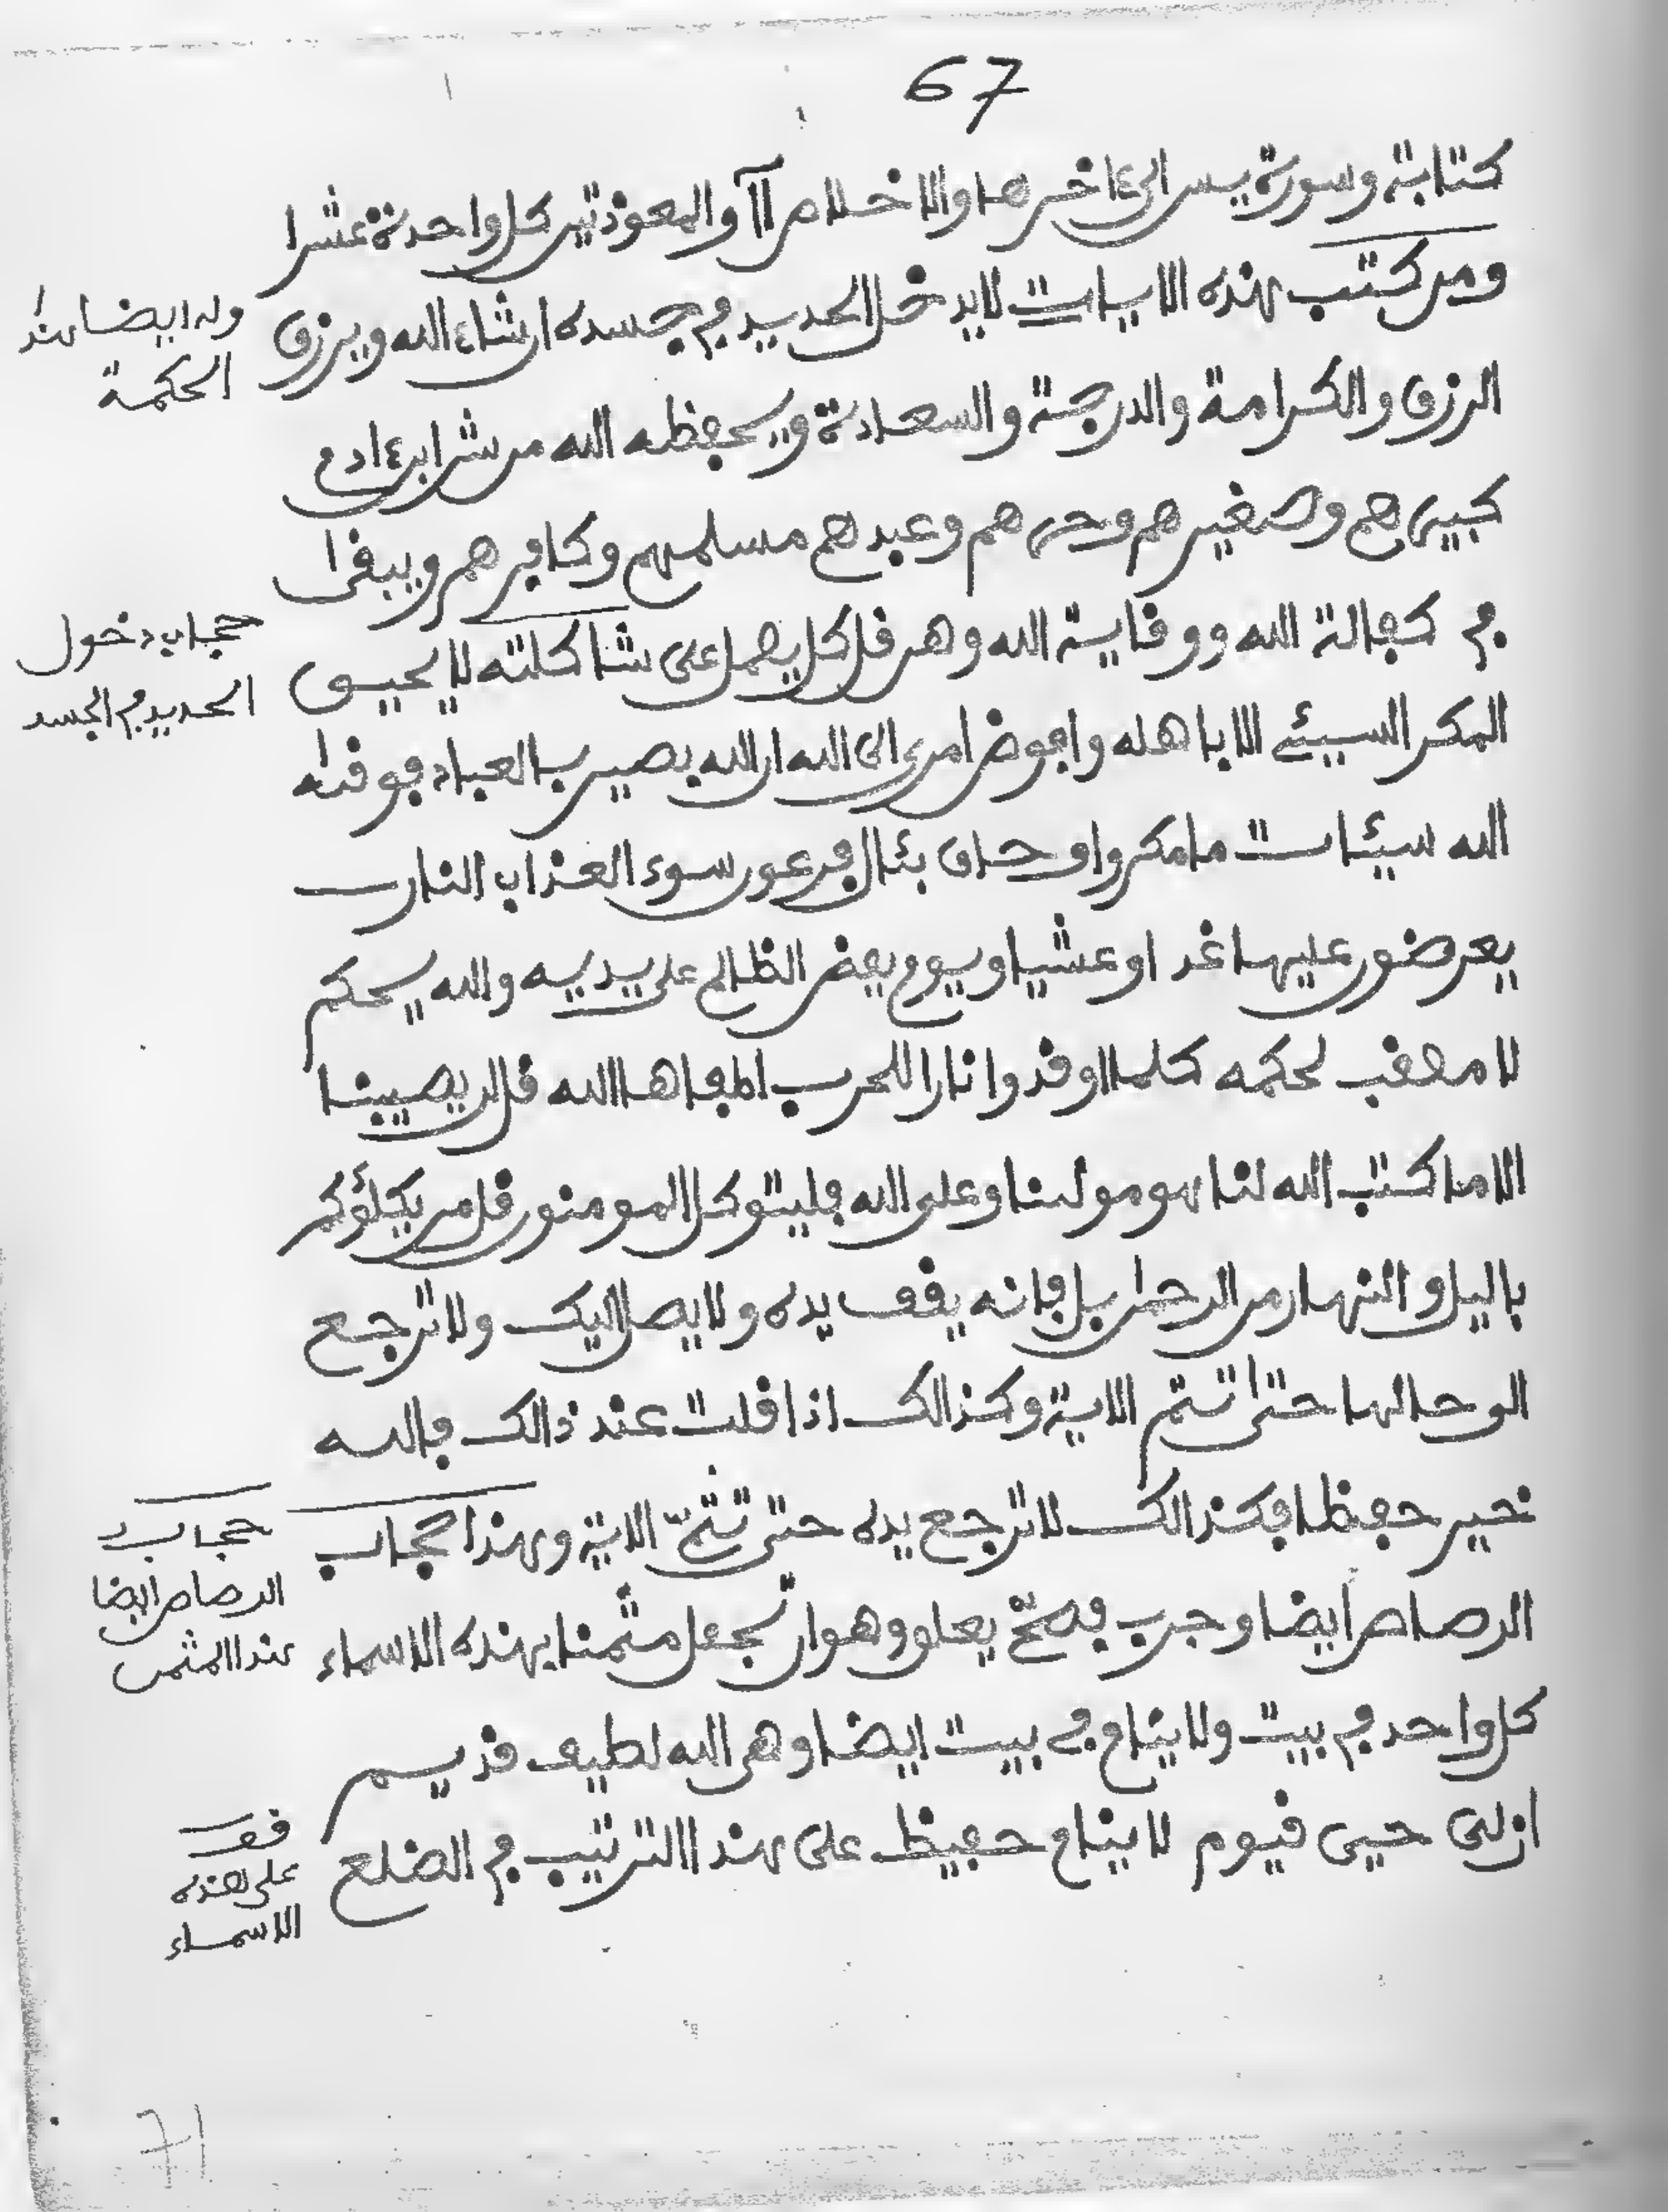 67
كتابة وسورة يس الى ءاخرها والاخلاص اا والمعوذتين كل واحدة عشرا
ومن كتب هذه الايات لا يدخل الحديد في جسده ان شاء الله ويرزق
وله ايضا هذا
الحكمة
الرزق والكرامة والدرجة والسعادة ويحفظه الله من شر ابن ءادم
كبيرهم وصغيرهم وحرهم وعبدهم مسلمهم وكافرهم ويبقى
في كفالة الله ووقاية الله وهي قل كل يعمل على شاكلته لا يحيق
حجاب دخول
الحديد في الجسد
المكر السيئ الا باهله وافوض امري الى الله ان الله بصير بالعباد فوقىه
الله سيئات ما مكروا وحاق بئال فرعون سوء العذاب النار
يعرضون عليها غدوا وعشيا ويوم يعض الظالم على يديه والله يحكم
لا معقب لحكمه كلما اوقدوا نارا للحرب اطفاها الله قل لن يصيبنا
الا ما كتب الله لنا هو مولىنا وعلى الله فليتوكل المومنون قل من يكلؤكم
باليل والنهار من الرحمن بل فانه يقف يده ولا يصل اليك ولا ترجع
الى حالها حتى تتم الاية وكذالك اذا قلت عند ذالك فالله
خير حفظا فكذالك لا ترجع يده حتى تتم الاية وهذا حجاب
حجاب
الرصاص ايضا
عند المثمن
الرصاص ايضا وجرب فصح يعلو وهو ان تجعل مثمنا بهذه الاسماء
كل واحد في بيت ولا ينام في بيت ايضا وهي الله لطيف قديم
ازلي حيي قيوم لا ينام حفيظ على هذا الترتيب في الضلع
قف
على هذه
الاسماء
71